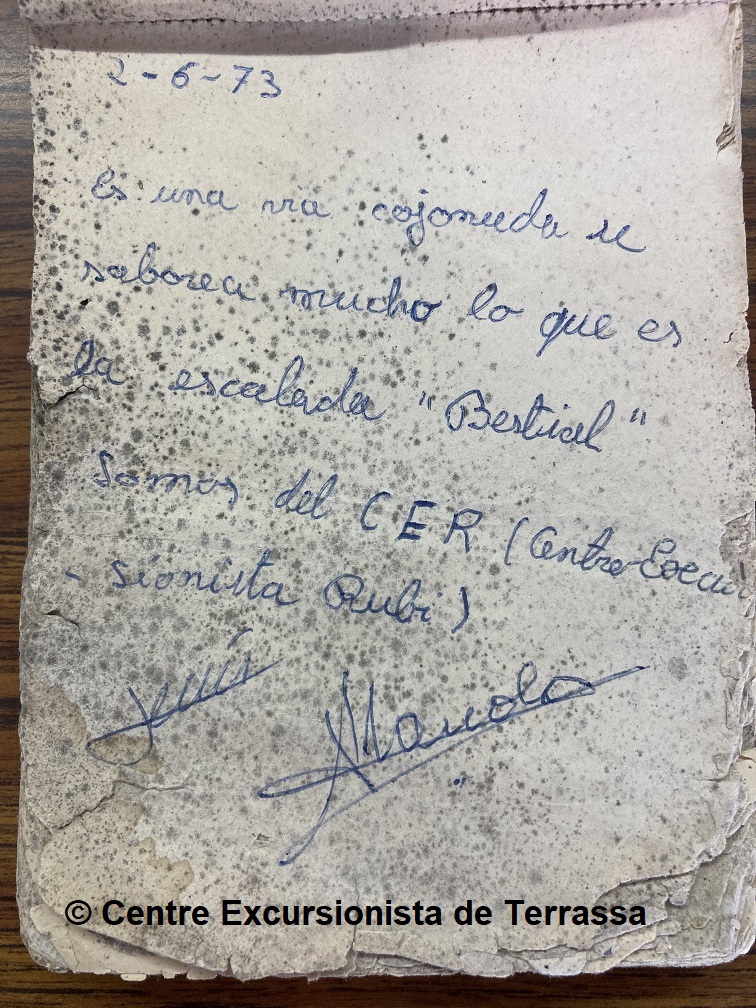 2-6-73
Es una via cojonuda se
saborea mucho lo que es
la escalada "Bestial"
Somos del CER (Centro Excur
- sionista Rubi)
Jesús
Manolo
© Centre Excursionista de Terrassa